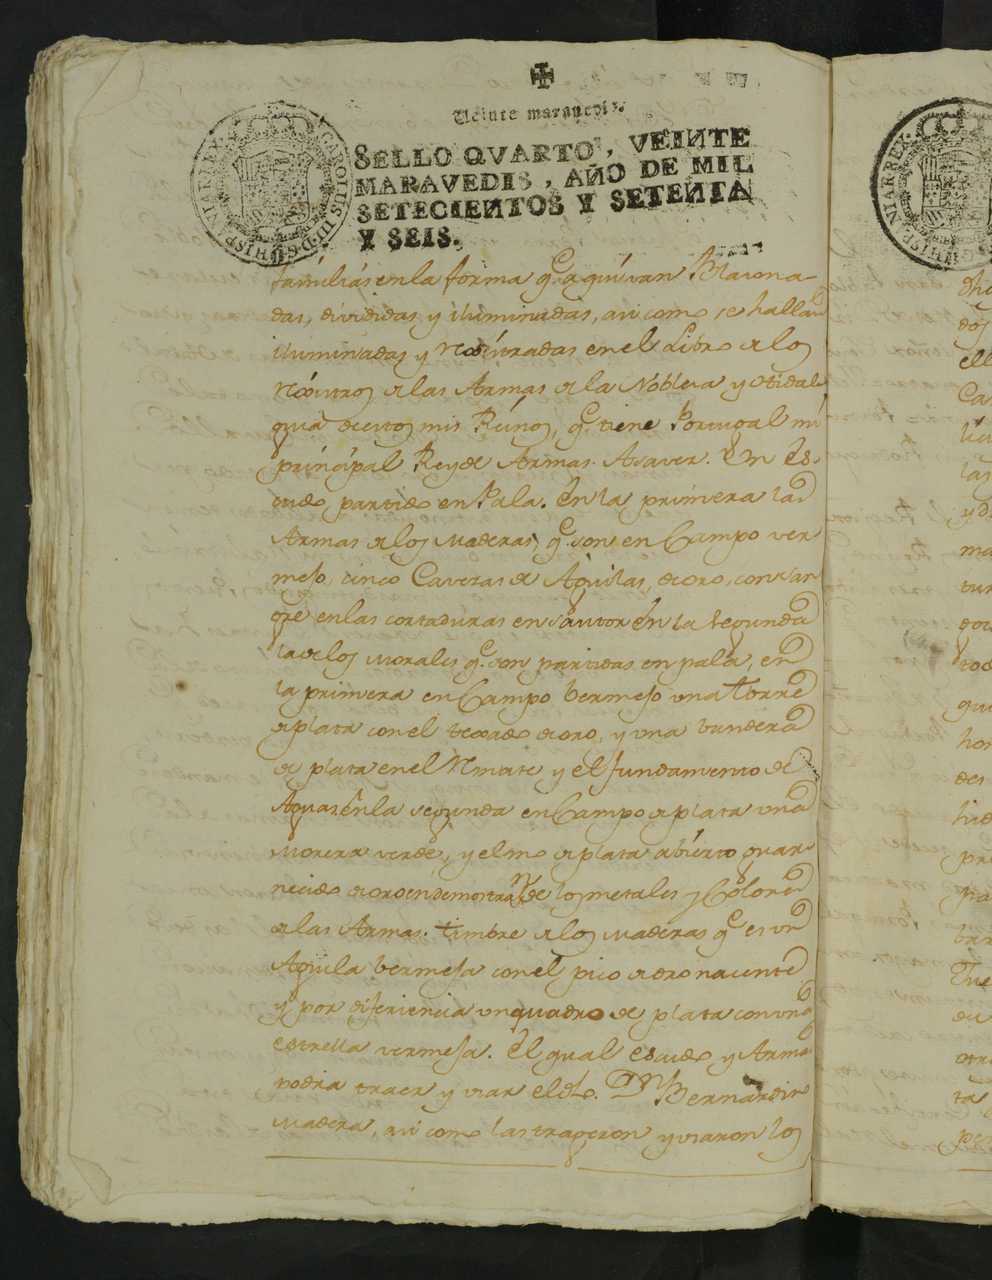 Veinte maravedis.
SELLO QVARTO, VEINTE
MARAVEDIS, AÑO DE MIL
SETECIENTOS Y SETENTA
Y SEIS.
CAROLUS III D G HISPANIAR REX
familias en la forma q.e aqui van Blasona-
das, divididas y iluminadas, asi como se hallan
iluminadas y rexistradas en el Libro de los
rexistros de las Armas de la Nobleza y Hidal
guia destos mis Reinos, q.e tiene Portugal mi
principal Rey de Armas. A saver. En es-
cudo partido en Pala. En la primera las
Armas de los Maderas, q.e son en Campo ver
mejo, cinco Cavezas de Aguilas, de oro, con san
gre en las cortaduras en Santor en la segunda
la de los Morales q.e son partidas en pala, en
la primera en Campo bermejo una torre
de plata con el texado de oro, y una bandera
de plata en el remate y el fundamento de
Aguas. En la segunda en Campo de plata una
Morera verde, y elmo de plata abierto guar-
necido de oro en demostra.n de los metales y Colores
de las Armas. timbre de los Maderas q.e es un
Aguila bermeja con el pico de oro nacente
y por diferiencia un quadro de plata con una
estrella vermeja. El qual escudo y Armas
podra traer y usar el dho. D.n Bernardin
Madera, asi como las trageron y usaron los